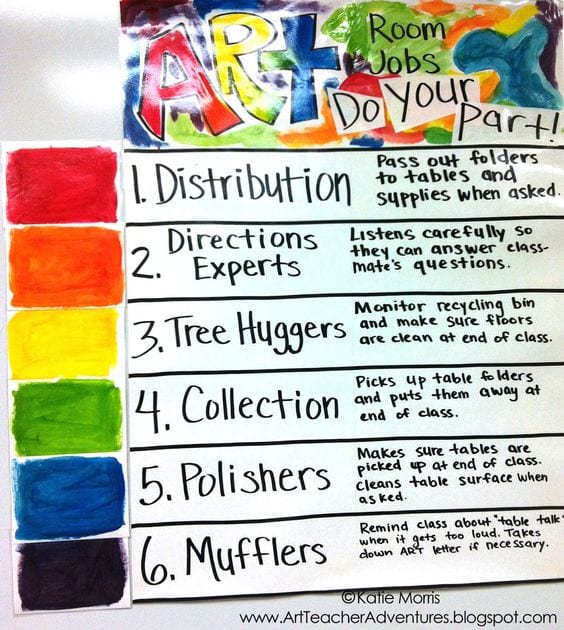 ART Room
Jobs
Do Your
Part!
1. Distribution
Pass out folders
to tables and
supplies when asked.
2. Directions
Experts
Listens carefully so
they can answer class-
mate's questions.
3. Tree Huggers
Monitor recycling bin
and make sure floors
are clean at end of class.
4. Collection
Picks up table folders
and puts them away at
end of class.
5. Polishers
Makes sure tables are
picked up at end of class.
cleans table surface when
asked.
6. Mufflers
Remind class about "table talk"
when it gets too loud. Takes
down ART letter if necessary.
©Katie Morris
www.ArtTeacherAdventures.blogspot.com